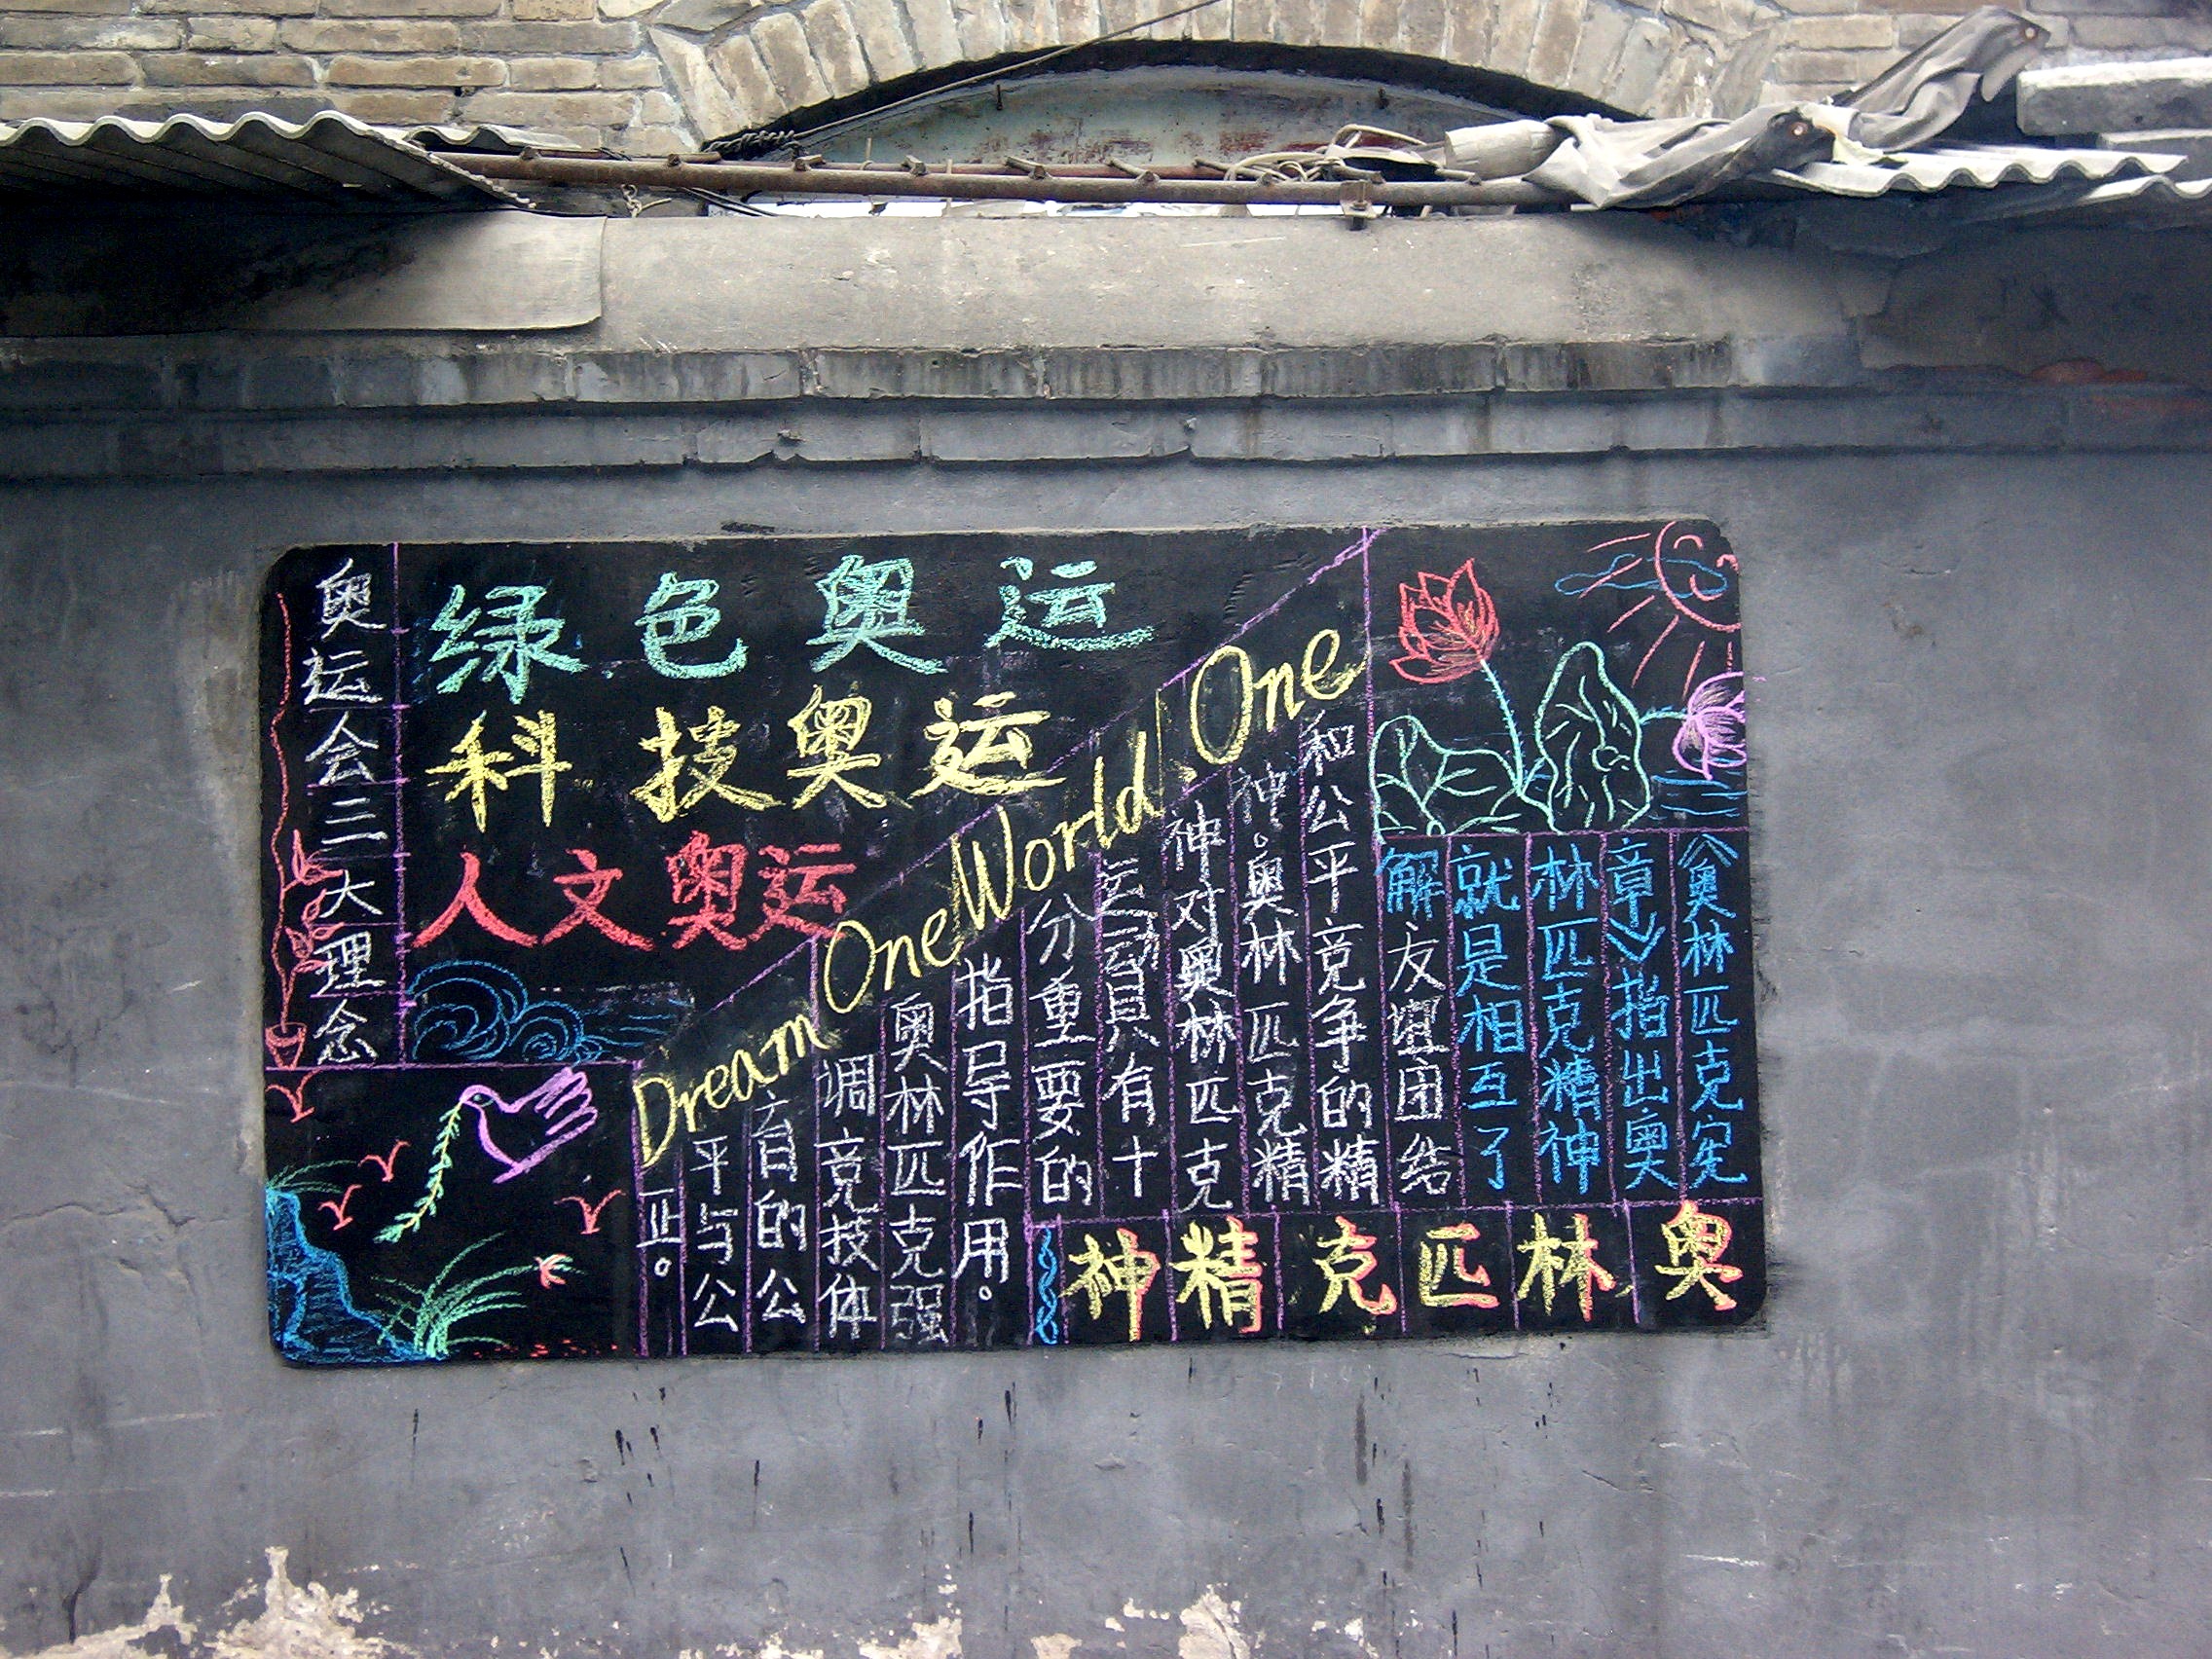 奥运会三大理念
绿色奥运
科技奥运
人文奥运
Dream One World. One
奥林匹克精神
《奥林匹克宪
章》指出奥
林匹克精神
就是相互了
解友谊团结
和公平竞争的精
神。奥林匹克精
神对奥林匹克
运动具有十
分重要的
指导作用。
奥林匹克强
调竞技体
育的公
平与公
正。